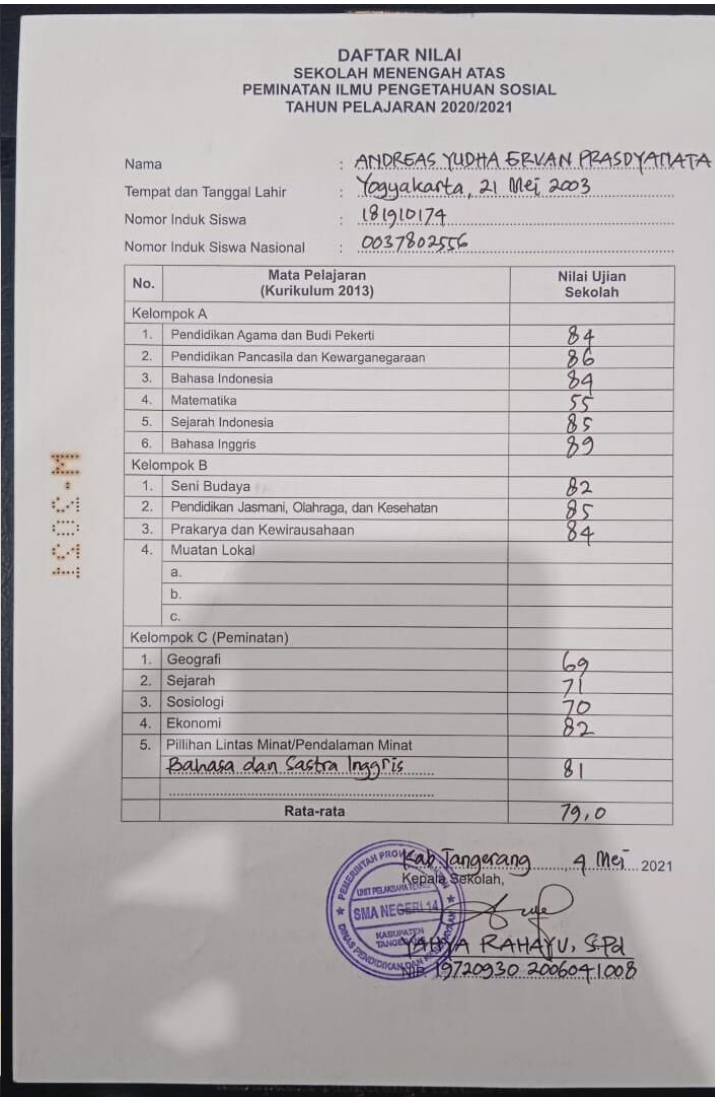 DAFTAR NILAI
SEKOLAH MENENGAH ATAS
PEMINATAN ILMU PENGETAHUAN SOSIAL
TAHUN PELAJARAN 2020/2021
Nama : ANDREAS YUDHA ERVAN PRASDYAMATA
Tempat dan Tanggal Lahir : Yogyakarta, 21 Mei 2003
Nomor Induk Siswa : 181910174
Nomor Induk Siswa Nasional : 0037802556
No. Mata Pelajaran (Kurikulum 2013) Nilai Ujian Sekolah
Kelompok A
1. Pendidikan Agama dan Budi Pekerti 84
2. Pendidikan Pancasila dan Kewarganegaraan 86
3. Bahasa Indonesia 84
4. Matematika 55
5. Sejarah Indonesia 85
6. Bahasa Inggris 89
Kelompok B
1. Seni Budaya 82
2. Pendidikan Jasmani, Olahraga, dan Kesehatan 85
3. Prakarya dan Kewirausahaan 84
4. Muatan Lokal
a.
b.
c.
Kelompok C (Peminatan)
1. Geografi 69
2. Sejarah 71
3. Sosiologi 70
4. Ekonomi 82
5. Pillihan Lintas Minat/Pendalaman Minat
Bahasa dan Sastra Inggris 81
Rata-rata 79,0
Kab. Tangerang, 4 Mei 2021
Kepala Sekolah,
SMA NEGERI 14
KABUPATEN
YAHYA RAHAYU, S.Pd
NIP. 19720930 2006041008